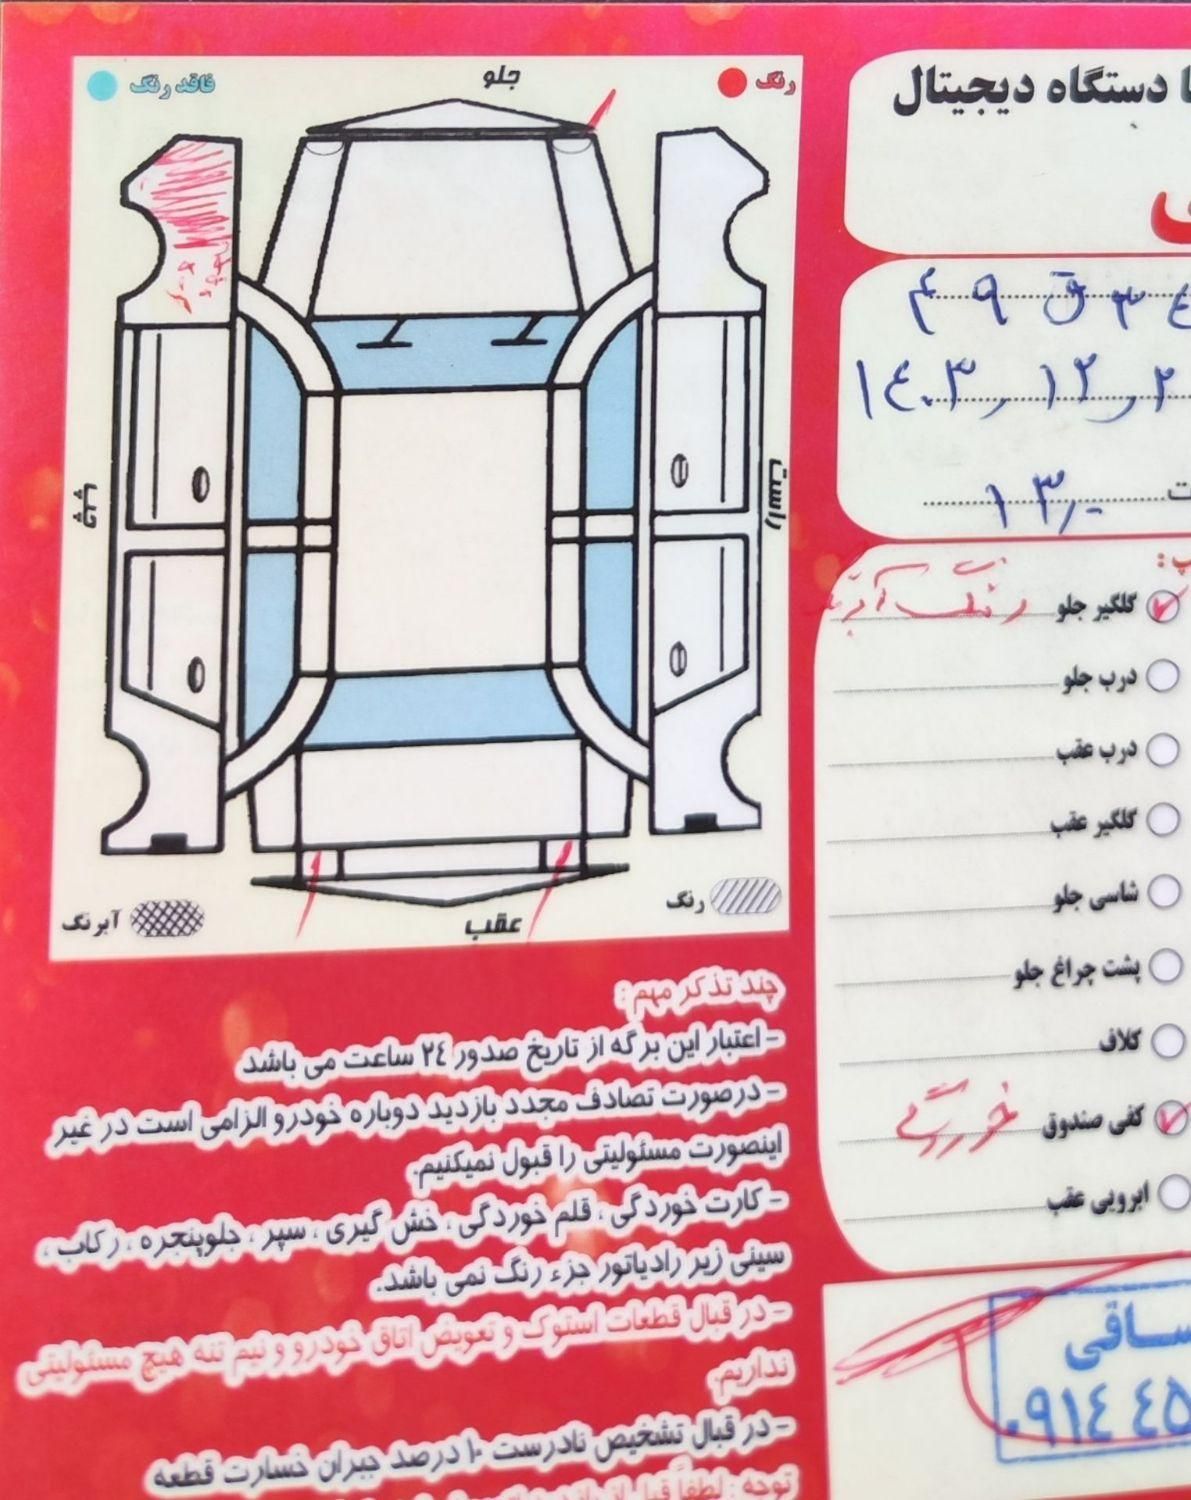 ا دستگاه دیجیتال
رنگ
جلو
فاقد رنگ
راست
چپ
رنگ
عقب
آبرنگ
٤ ٣ ق ٩ ٤
١٤٠٣, ١٢, ٢
ت ١٣,٠
پ :
گلگیر جلو رنگ
درب جلو
درب عقب
گلگیر عقب
شاسی جلو
پشت چراغ جلو
کلاف
کفی صندوق خوردگی
ابرویی عقب
ساقی
٠٩١٤ ٤٥
چند تذکر مهم :
- اعتبار این برگه از تاریخ صدور ٢٤ ساعت می باشد
- درصورت تصادف مجدد بازدید دوباره خودرو الزامی است در غیر
اینصورت مسئولیتی را قبول نمیکنیم.
- کارت خوردگی ، قلم خوردگی ، خش گیری ، سپر ، جلوپنجره ، رکاب ،
سینی زیر رادیاتور جزء رنگ نمی باشد.
- در قبال قطعات استوک و تعویض اتاق خودرو و نیم تنه هیچ مسئولیتی
نداریم.
- در قبال تشخیص نادرست ١٠ درصد جبران خسارت قطعه
توجه : لطفاً قبل از